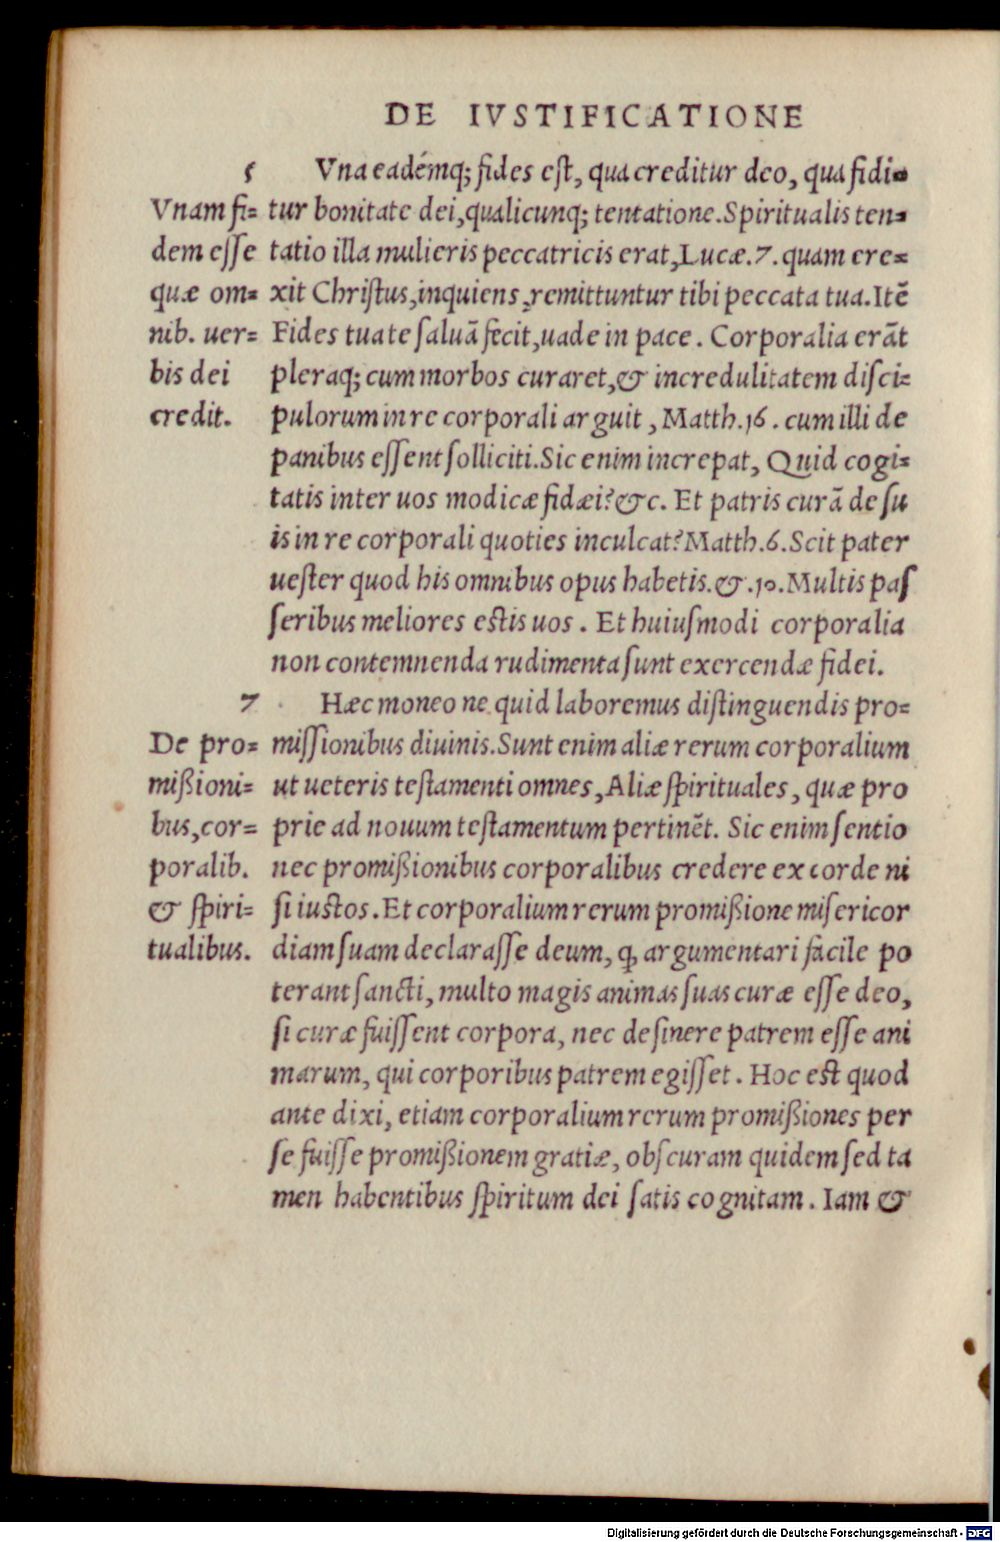 DE IVSTIFICATIONE
5 Vna eadémq; fides eſt, qua creditur deo, qua fidi=
Vnam fi= tur bonitate dei, qualicunq; tentatione. Spiritualis ten=
dem eſſe tatio illa mulieris peccatricis erat, Lucæ. 7. quam ere=
quæ om= xit Chriſtus, inquiens, remittuntur tibi peccata tua. Itē
nib. uer= Fides tua te ſaluā fecit, uade in pace. Corporalia erāt
bis dei pleraq; cum morbos curaret, & incredulitatem diſci=
credit. pulorum in re corporali arguit, Matth. 16. cum illi de
panibus eſſent ſolliciti. Sic enim increpat, Quid cogi=
tatis inter uos modicæ fidæi? &c. Et patris curā de ſu
is in re corporali quoties inculcat? Matth. 6. Scit pater
ueſter quod his omnibus opus habetis. &. 10. Multis paſ
ſeribus meliores eſtis uos. Et huiuſmodi corporalia
non contemnenda rudimenta ſunt exercendæ fidei.
7 Hæc moneo ne quid laboremus diſtinguendis pro=
De pro= miſſionibus diuinis. Sunt enim aliæ rerum corporalium
mißioni= ut ueteris teſtamenti omnes, Aliæ ſpirituales, quæ pro
bus, cor= prie ad nouum teſtamentum pertinēt. Sic enim ſentio
poralib. nec promißionibus corporalibus credere ex corde ni
& ſpiri= ſi iuſtos. Et corporalium rerum promißione miſericor
tualibus. diam ſuam declaraſſe deum, ꝙ argumentari facile po
terant ſancti, multo magis animas ſuas curæ eſſe deo,
ſi curæ fuiſſent corpora, nec deſinere patrem eſſe ani
marum, qui corporibus patrem egiſſet. Hoc eſt quod
ante dixi, etiam corporalium rerum promißiones per
ſe fuiſſe promißionem gratiæ, obſcuram quidem ſed ta
men habentibus ſpiritum dei ſatis cognitam. Iam &
Digitalisierung gefördert durch die Deutsche Forschungsgemeinschaft - DFG